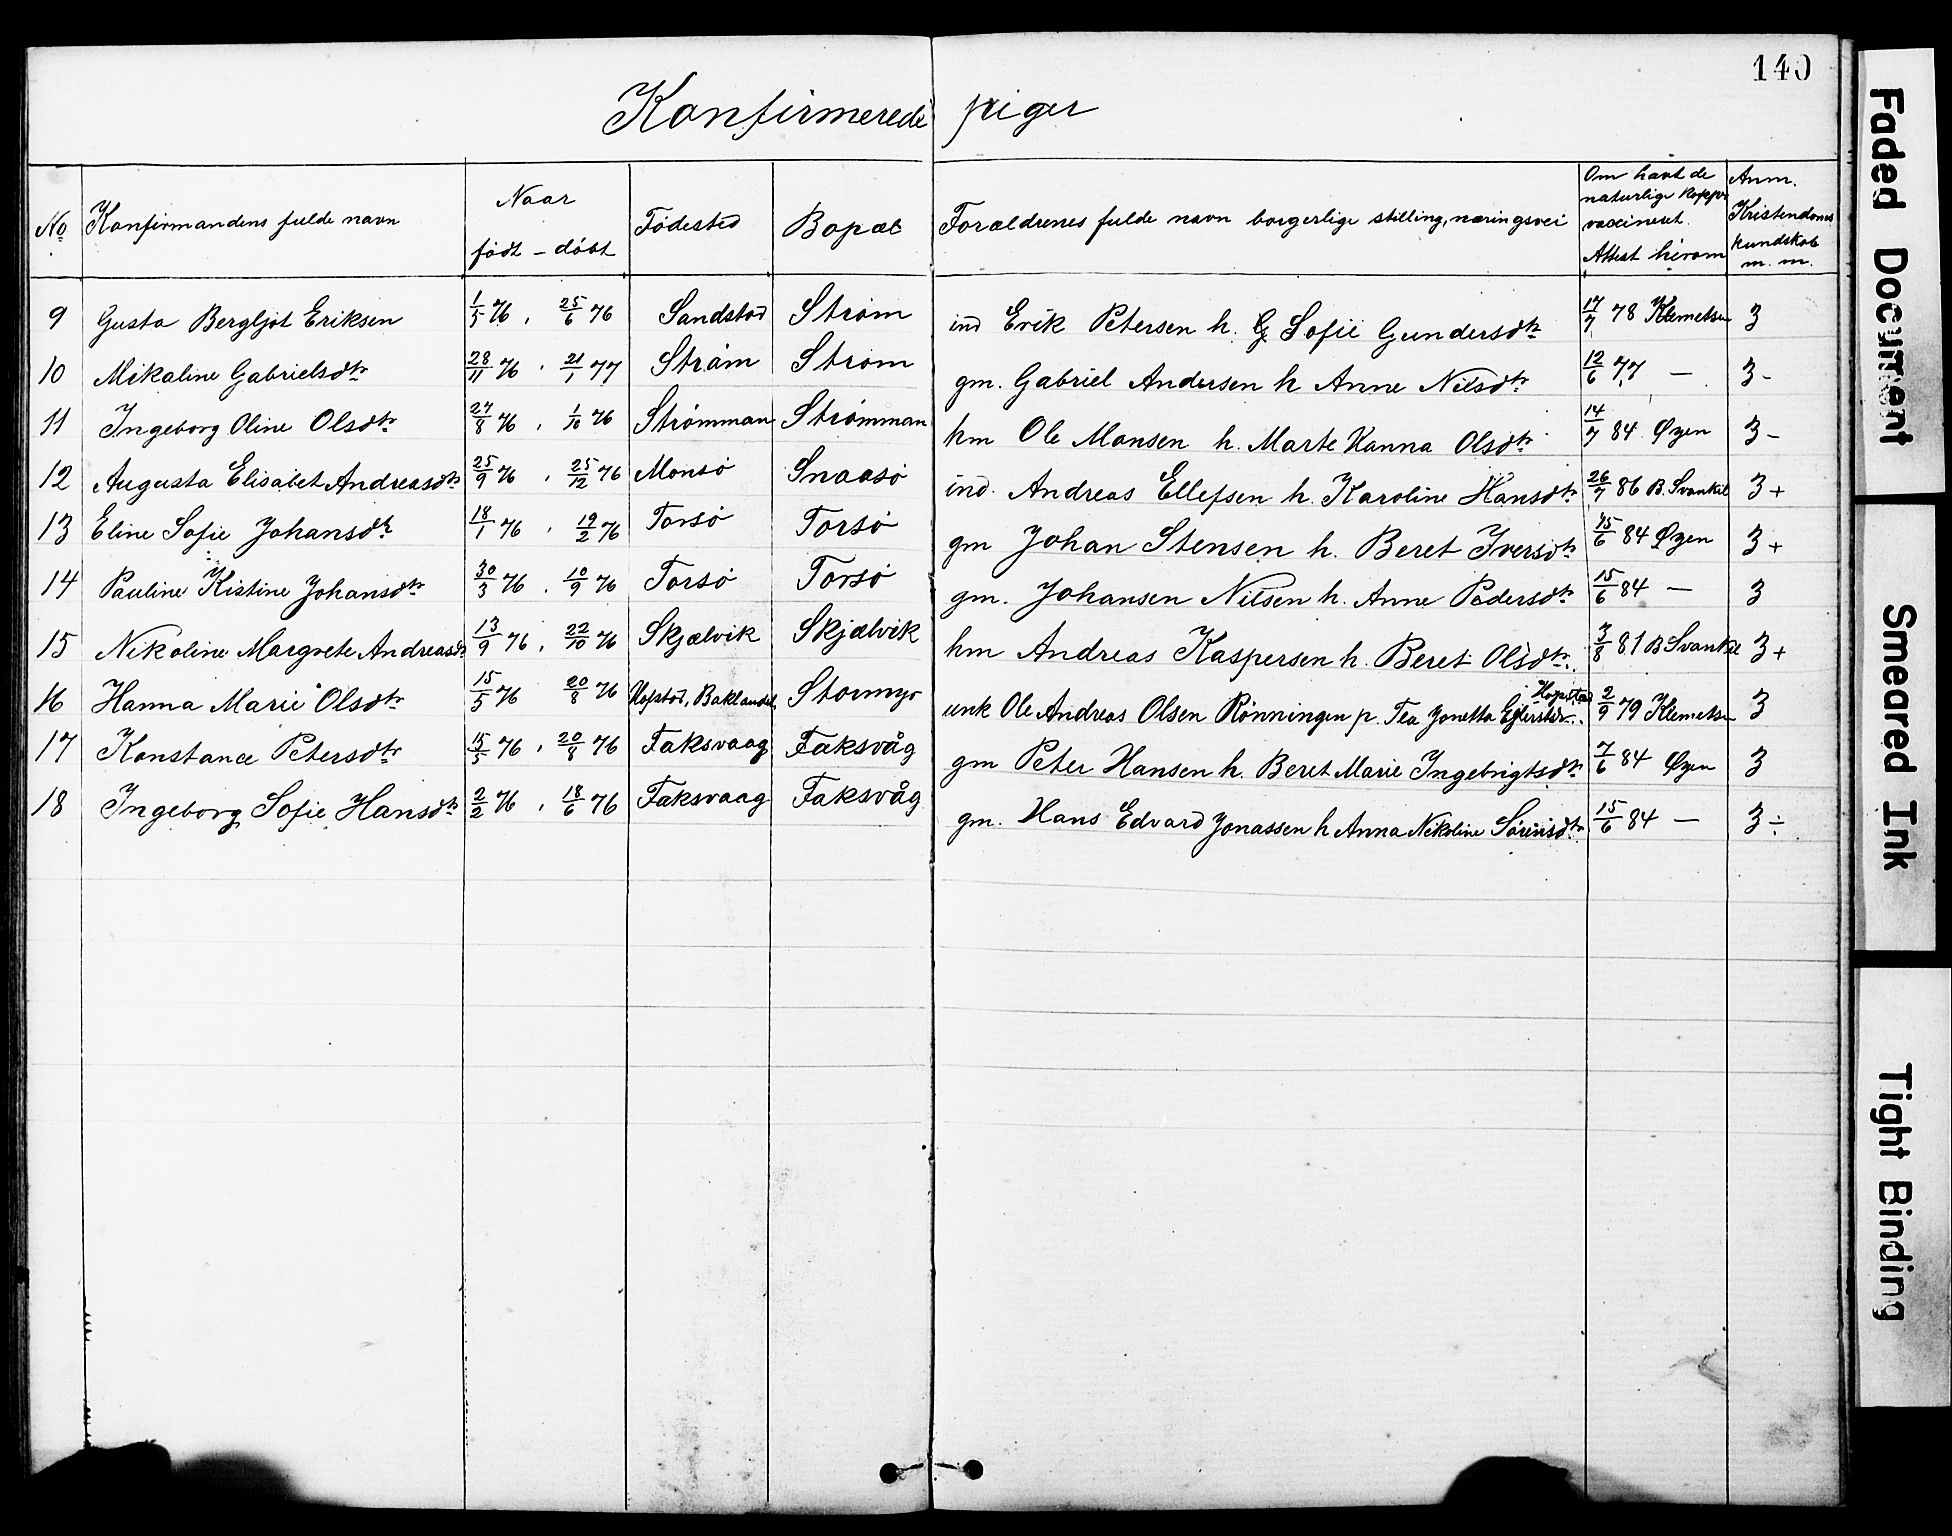 140
Konfirmerede piger
No Konfirmandens fulde navn Naar født – döbt Födested Bopæl Forældrenes fulde navn borgerlige stilling, næringsvei Om havt de naturlige kopper vaccineret. Attest herom Anm. Kristendoms kundskab m. m.
9 Gusta Bergljot Eriksen 1/5 76, 25/6 76 Sandstad Strøm ind Erik Petersen h. G Sofie Gundersdtr 17/7 78 Klemetsen 3
10 Mikaline Gabrielsdtr 28/11 76, 21/1 77 Strøm Strøm gm. Gabriel Andersen h Anne Nilsdtr 12/6 77 — 3-
11 Ingeborg Oline Olsdtr 27/8 76, 1/10 76 Strømman Strømman hm Ole Monsen h. Marte Hanna Olsdtr 14/7 84 Øyen 3-
12 Augusta Elisabet Andreasdtr 25/9 76, 25/12 76 Monsø Snaasø ind. Andreas Ellefsen h. Karoline Hansdtr 26/7 86 B. Svankil 3+
13 Eline Sofie Johansdtr 18/1 76, 19/2 76 Torsø Torsø gm Johan Stensen h. Beret Iversdtr 15/6 84 Øyen 3+
14 Pauline Kistine Johansdtr 30/3 76, 10/9 76 Torsø Torsø gm. Johansen Nilsen h. Anne Pedersdtr 15/6 84 — 3
15 Nikoline Margrete Andreasdtr 13/9 76, 22/10 76 Skjælvik Skjælvik hm Andreas Kaspersen h. Beret Olsdtr. 3/8 81 B Svankil 3+
16 Hanna Marie Olsdtr 15/5 76 20/8 76 Hofstad, Baklandet Stormyr unk Ole Andreas Olsen Rönningen p. Tea Jonetta Hopstad 2/9 79 Klemetsen 3
17 Konstance Petersdtr 15/5 76, 20/8 76 Faksvaag Faksvåg gm Peter Hansen h. Beret Marie Ingebrigtsdtr 7/6 84 Øyen 3
18 Ingeborg Sofie Hansdtr 2/2 76, 18/6 76 Faksvaag Faksvåg gm. Hans Edvard Jonassen h Anna Nikoline Sörensdtr 15/6 84 — 3÷
Faded Document
Smeared Ink
Tight Binding